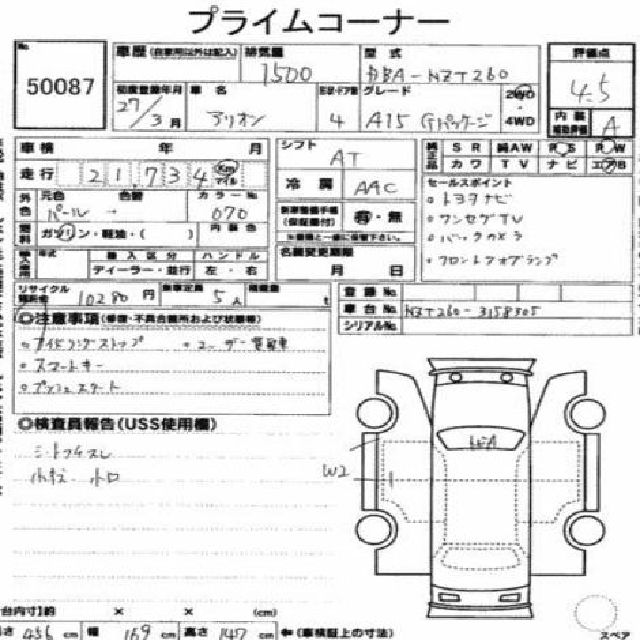 プライムコーナー
No. 50087
車歴(自家用以外は記入) 排気量 1500 型式 DBA-NZT260
初度登録年月 27/3月 車名 アリオン ドア 4 グレード A15 Gパッケージ 2WD・4WD
評価点 4.5
内装 補助評価 A
車検 年 月
走行 21,734 Km マイル
シフト AT
冷房 AAC
純正品 SR 純AW PS PW
カワ TV ナビ エアB
外色 元色 パール 色替 → カラーNo. 070
燃料 ガソリン・軽油・( ) 内装色
年式 輸入区分 ディーラー・並行 ハンドル 左・右
新車整備手帳(保証書付) 有・無
※書類と一緒に保管下さい。
名義変更期限 月 日
セールスポイント
・トヨタナビ
・ワンセグTV
・バックカメラ
・フロントフォグランプ
リサイクル預託金 10280円 乗車定員 5人 積載量 t
登録No.
車台No. NZT260-3158505
シリアルNo.
◎注意事項(修復・不具合箇所および状態等)
・アイドリングストップ ・ユーザー買取車
・スマートキー
・プッシュスタート
◎検査員報告(USS使用欄)
シートスレ
小キズ 小凹
W2
台内寸)約 × × (cm)
長さ 456 cm 幅 169 cm 高さ 147 cm ←(車検証上の寸法)
スペア